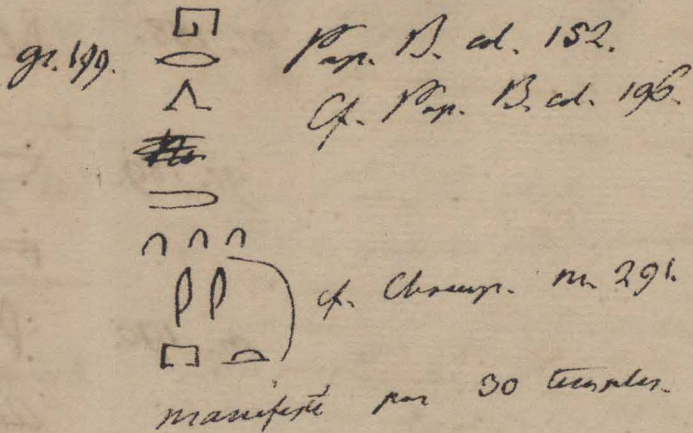 gr. 199. Pap. B. col. 152.
Cf. Pap. B. col. 196.
cf. Champ. n. 291.
manifesté par 30 temples.